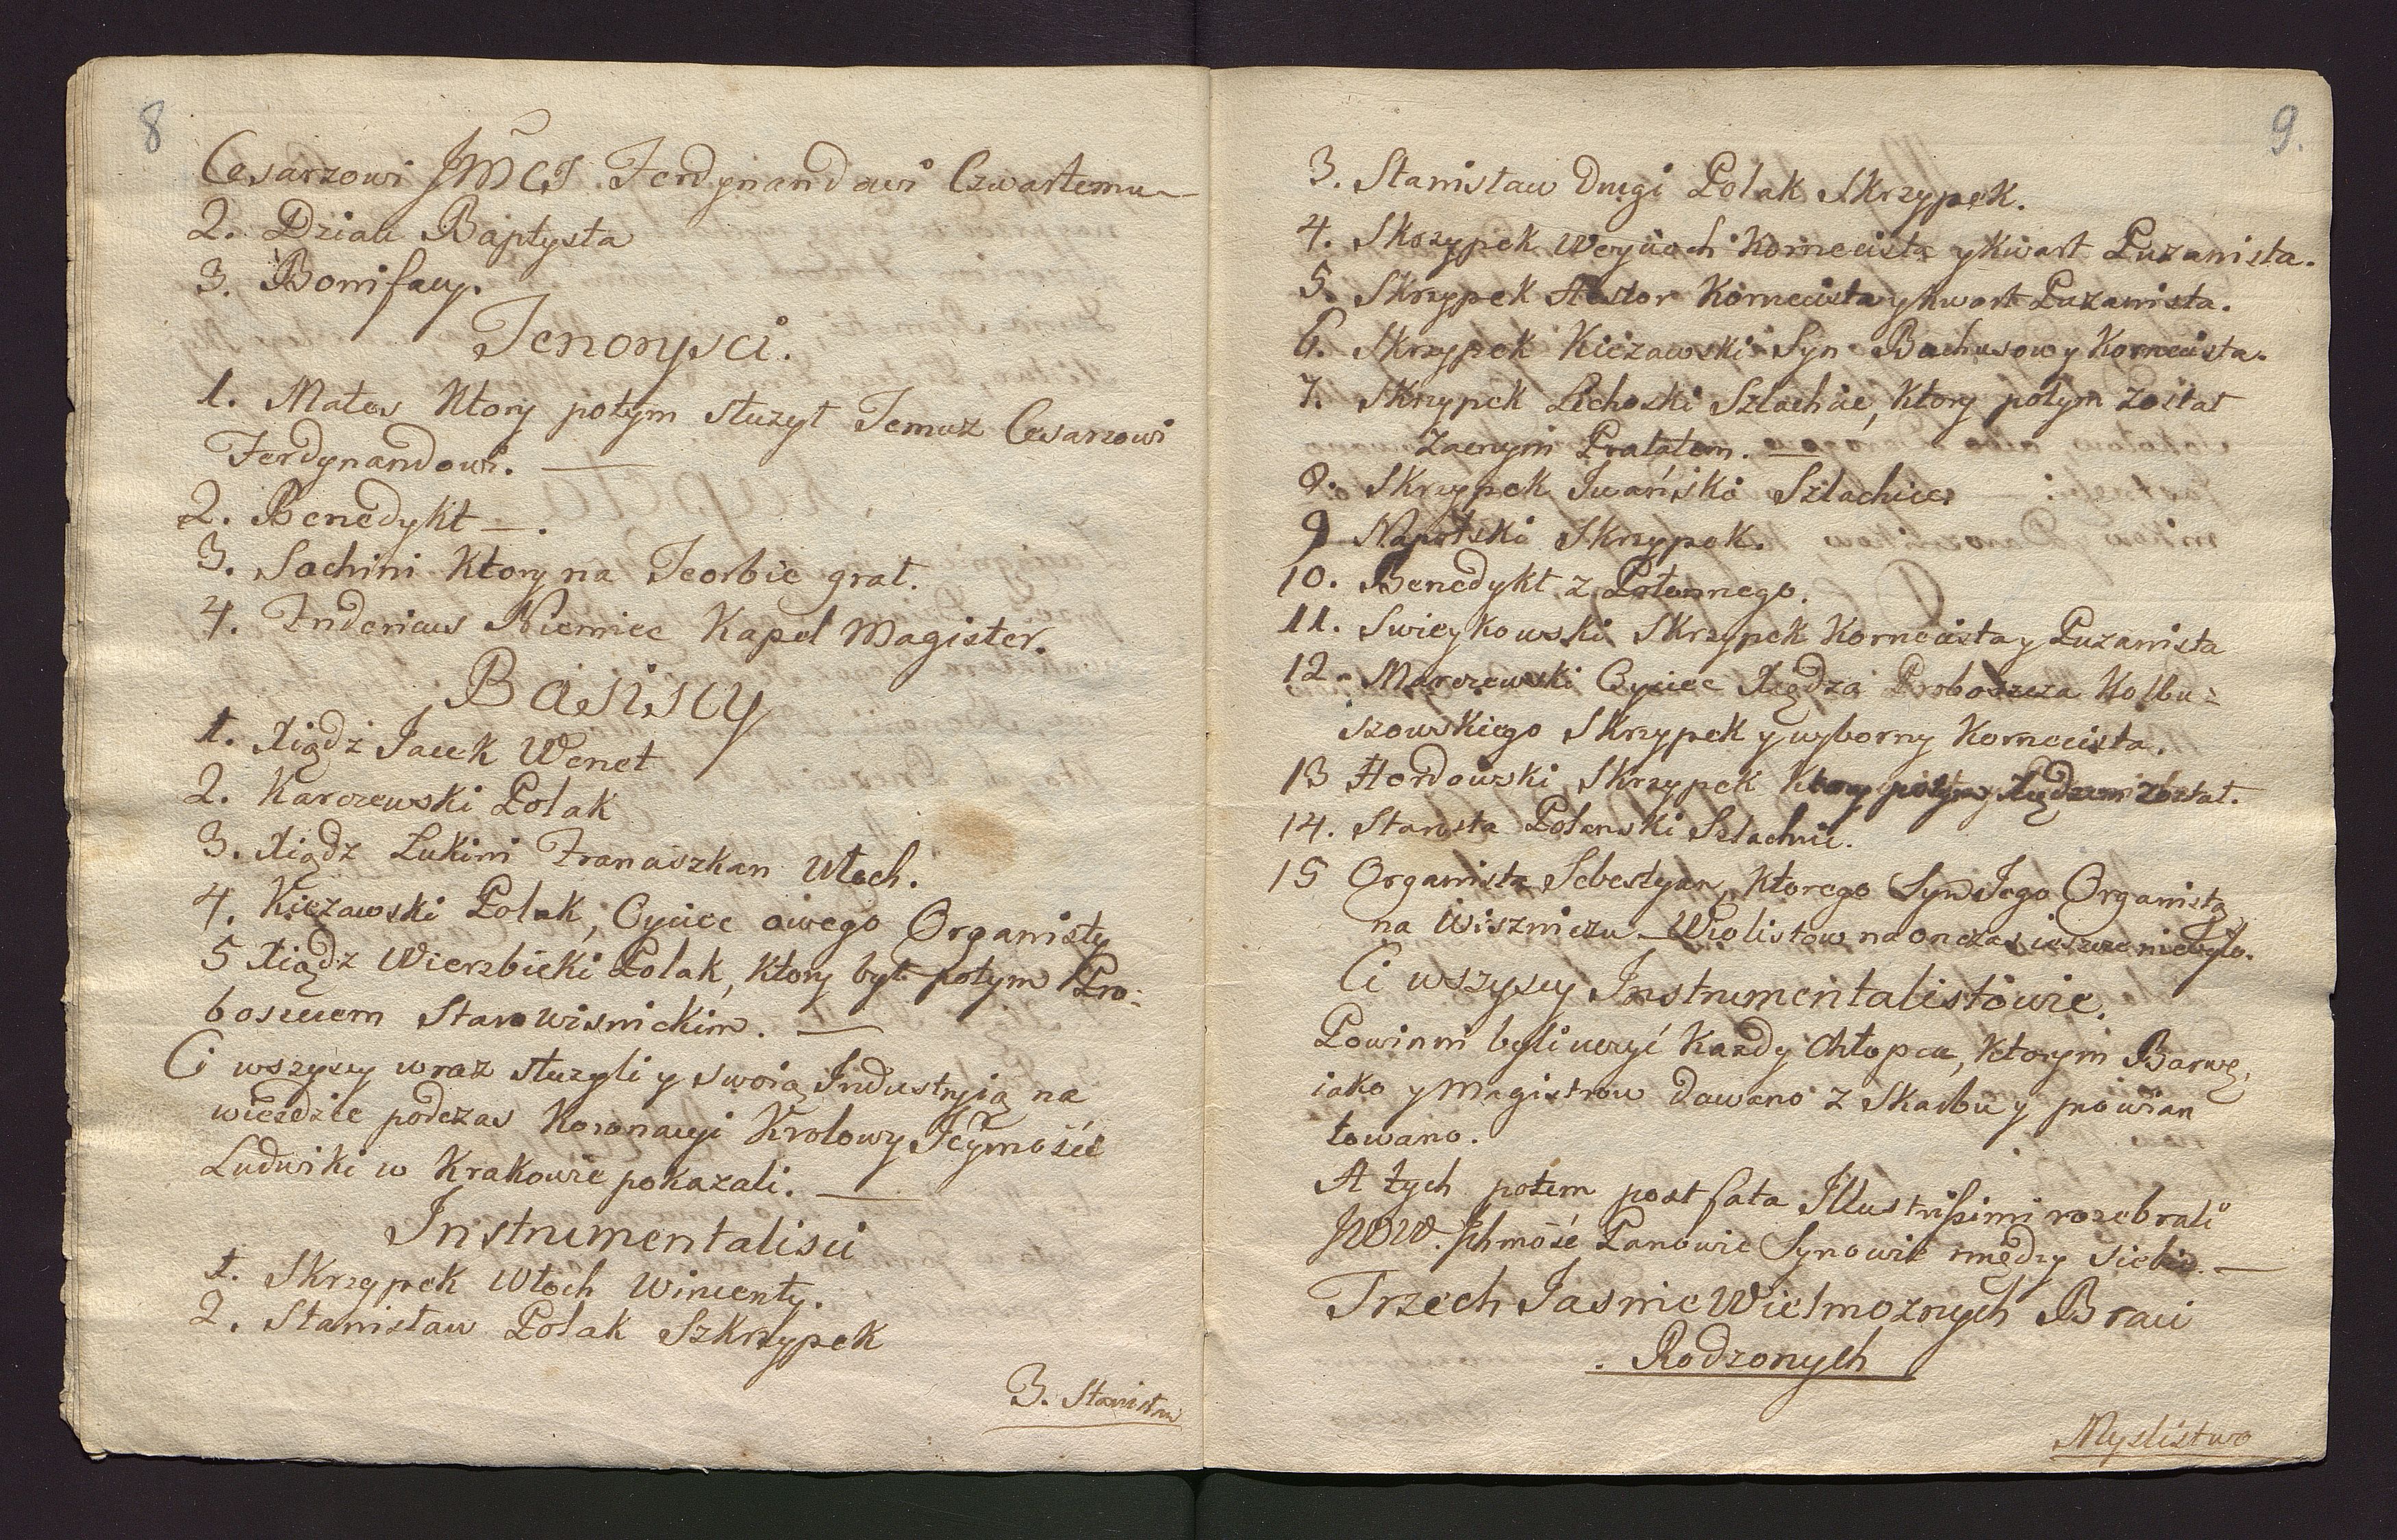 8
Cesarzowi JMCI. Ferdynandowi Czwartemu
2. Dzian Baptysta
3. Bonifacy.
Tenoryści.
1. Mateo Ktory potym służył Temuż Cesarzowi
Ferdynandowi. —
2. Benedykt — .
3. Sachini Ktory na Teorbie grał.
4. Fridericus Niemiec Kapel Magister.
Basiscy
1. Xiądz Jacek Wenet
2. Karczewski Polak
3. Xiądz Lukini Franciszkan Włoch.
4. Kieżawski Polak, Oyciec owego Organisty
5 Xiądz Wierzbicki Polak, Ktory był potym Pro-
boszczem Starowisnickim. —
Ci wszyscy wraz służyli y swoią Industryią na
wieździe podczas Koronacyi Krolowy Jeymość
Ludwiki w Krakowie pokazali. —
Instrumentalisci
1. Skrzypek Włoch Wincenty.
2. Stanisław Polak Szkrzypek
3. Stanisław
9.
3. Stanisław Drugi Polak Skrzypek.
4. Skrzypek Woyciech Kornecista y Kwart Puzanista.
5. Skrzypek Kornecista y kwart Puzanista.
6. Skrzypek Kieżawski Syn Bachusowy Kornecista.
7. Skrzypek Lechoski Szlachcic, Ktory potym Został
Zacnym Prałatem. —
8. Skrzypek Iwański Szlachcic
9 Napolski Skrzypek.
10. Benedykt z
11. Swieykowski Skrzypek Kornecista y Puzanista
12. Marczewski Oyciec Xiędza Proboszcza Kolbu-
szowskiego Skrzypek y wyborny Kornecista.
13 Hordowski Skrzypek Ktory potym Xiędzem został.
14. Starosta Polanski Szlachcic.
15 Organista Sebestyan, Ktorego Syn Jego Organistą
na Wiszniczu – Wiolistow na onczas ieszcze niebyło.
Ci wszyscy Instrumentalistowie.
Powinni byli uczyć Kazdy Chłopca, Ktorym Barwę,
iako y Magistrow dawano z Skarbu y prowian
towano.
A tych potem post fata Illustrissimi rozebrali
JWW. Ichmość Panowie Synowie między siebie. —
Trzech Jasnie Wielmoznych Braci
. Rodzonych
Myslistwo